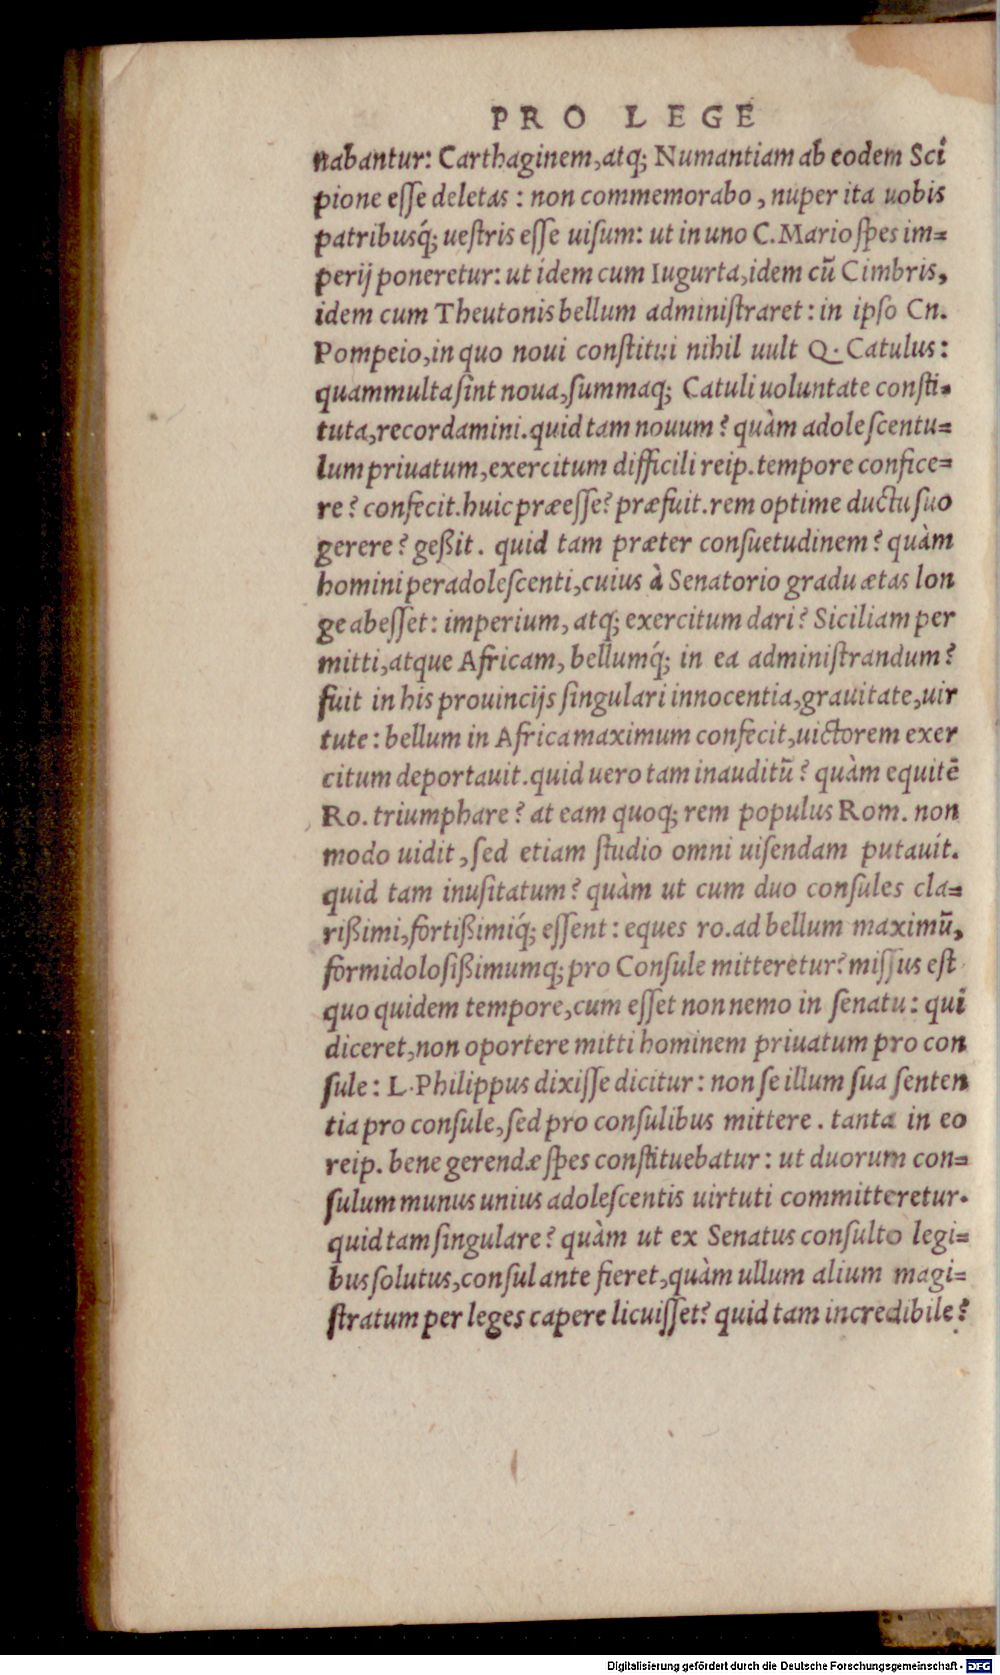 PRO LEGE
nabantur: Carthaginem, atq; Numantiam ab eodem Sci
pione esse deletas: non commemorabo, nuper ita uobis
patribusq́; uestris esse uisum: ut in uno C. Mario spes im=
perij poneretur: ut idem cum Iugurta, idem cū Cimbris,
idem cum Theutonis bellum administraret: in ipso Cn.
Pompeio, in quo noui constitui nihil uult Q. Catulus:
quammulta sint noua, summaq; Catuli uoluntate consti=
tuta, recordamini. quid tam nouum? quàm adolescentu=
lum priuatum, exercitum difficili reip. tempore confice=
re? confecit. huic præesse? præfuit. rem optime ductu suo
gerere? geßit. quid tam præter consuetudinem? quàm
homini peradolescenti, cuius à Senatorio gradu ætas lon
ge abesset: imperium, atq; exercitum dari? Siciliam per
mitti, atque Africam, bellumq́; in ea administrandum?
fuit in his prouincijs singulari innocentia, grauitate, uir
tute: bellum in Africa maximum confecit, uictorem exer
citum deportauit. quid uero tam inauditū? quàm equitē
Ro. triumphare? at eam quoq; rem populus Rom. non
modo uidit, sed etiam studio omni uisendam putauit.
quid tam inusitatum? quàm ut cum duo consules cla=
rißimi, fortißimiq́; essent: eques ro. ad bellum maximū,
formidolosißimumq; pro Consule mitteretur? missus est
quo quidem tempore, cum esset non nemo in senatu: qui
diceret, non oportere mitti hominem priuatum pro con
sule: L. Philippus dixisse dicitur: non se illum sua senten
tia pro consule, sed pro consulibus mittere. tanta in eo
reip. bene gerendæ spes constituebatur: ut duorum con=
sulum munus unius adolescentis uirtuti committeretur.
quid tam singulare? quàm ut ex Senatus consulto legi=
bus solutus, consul ante fieret, quàm ullum alium magi=
stratum per leges capere licuisset? quid tam incredibile?
Digitalisierung gefördert durch die Deutsche Forschungsgemeinschaft - DFG